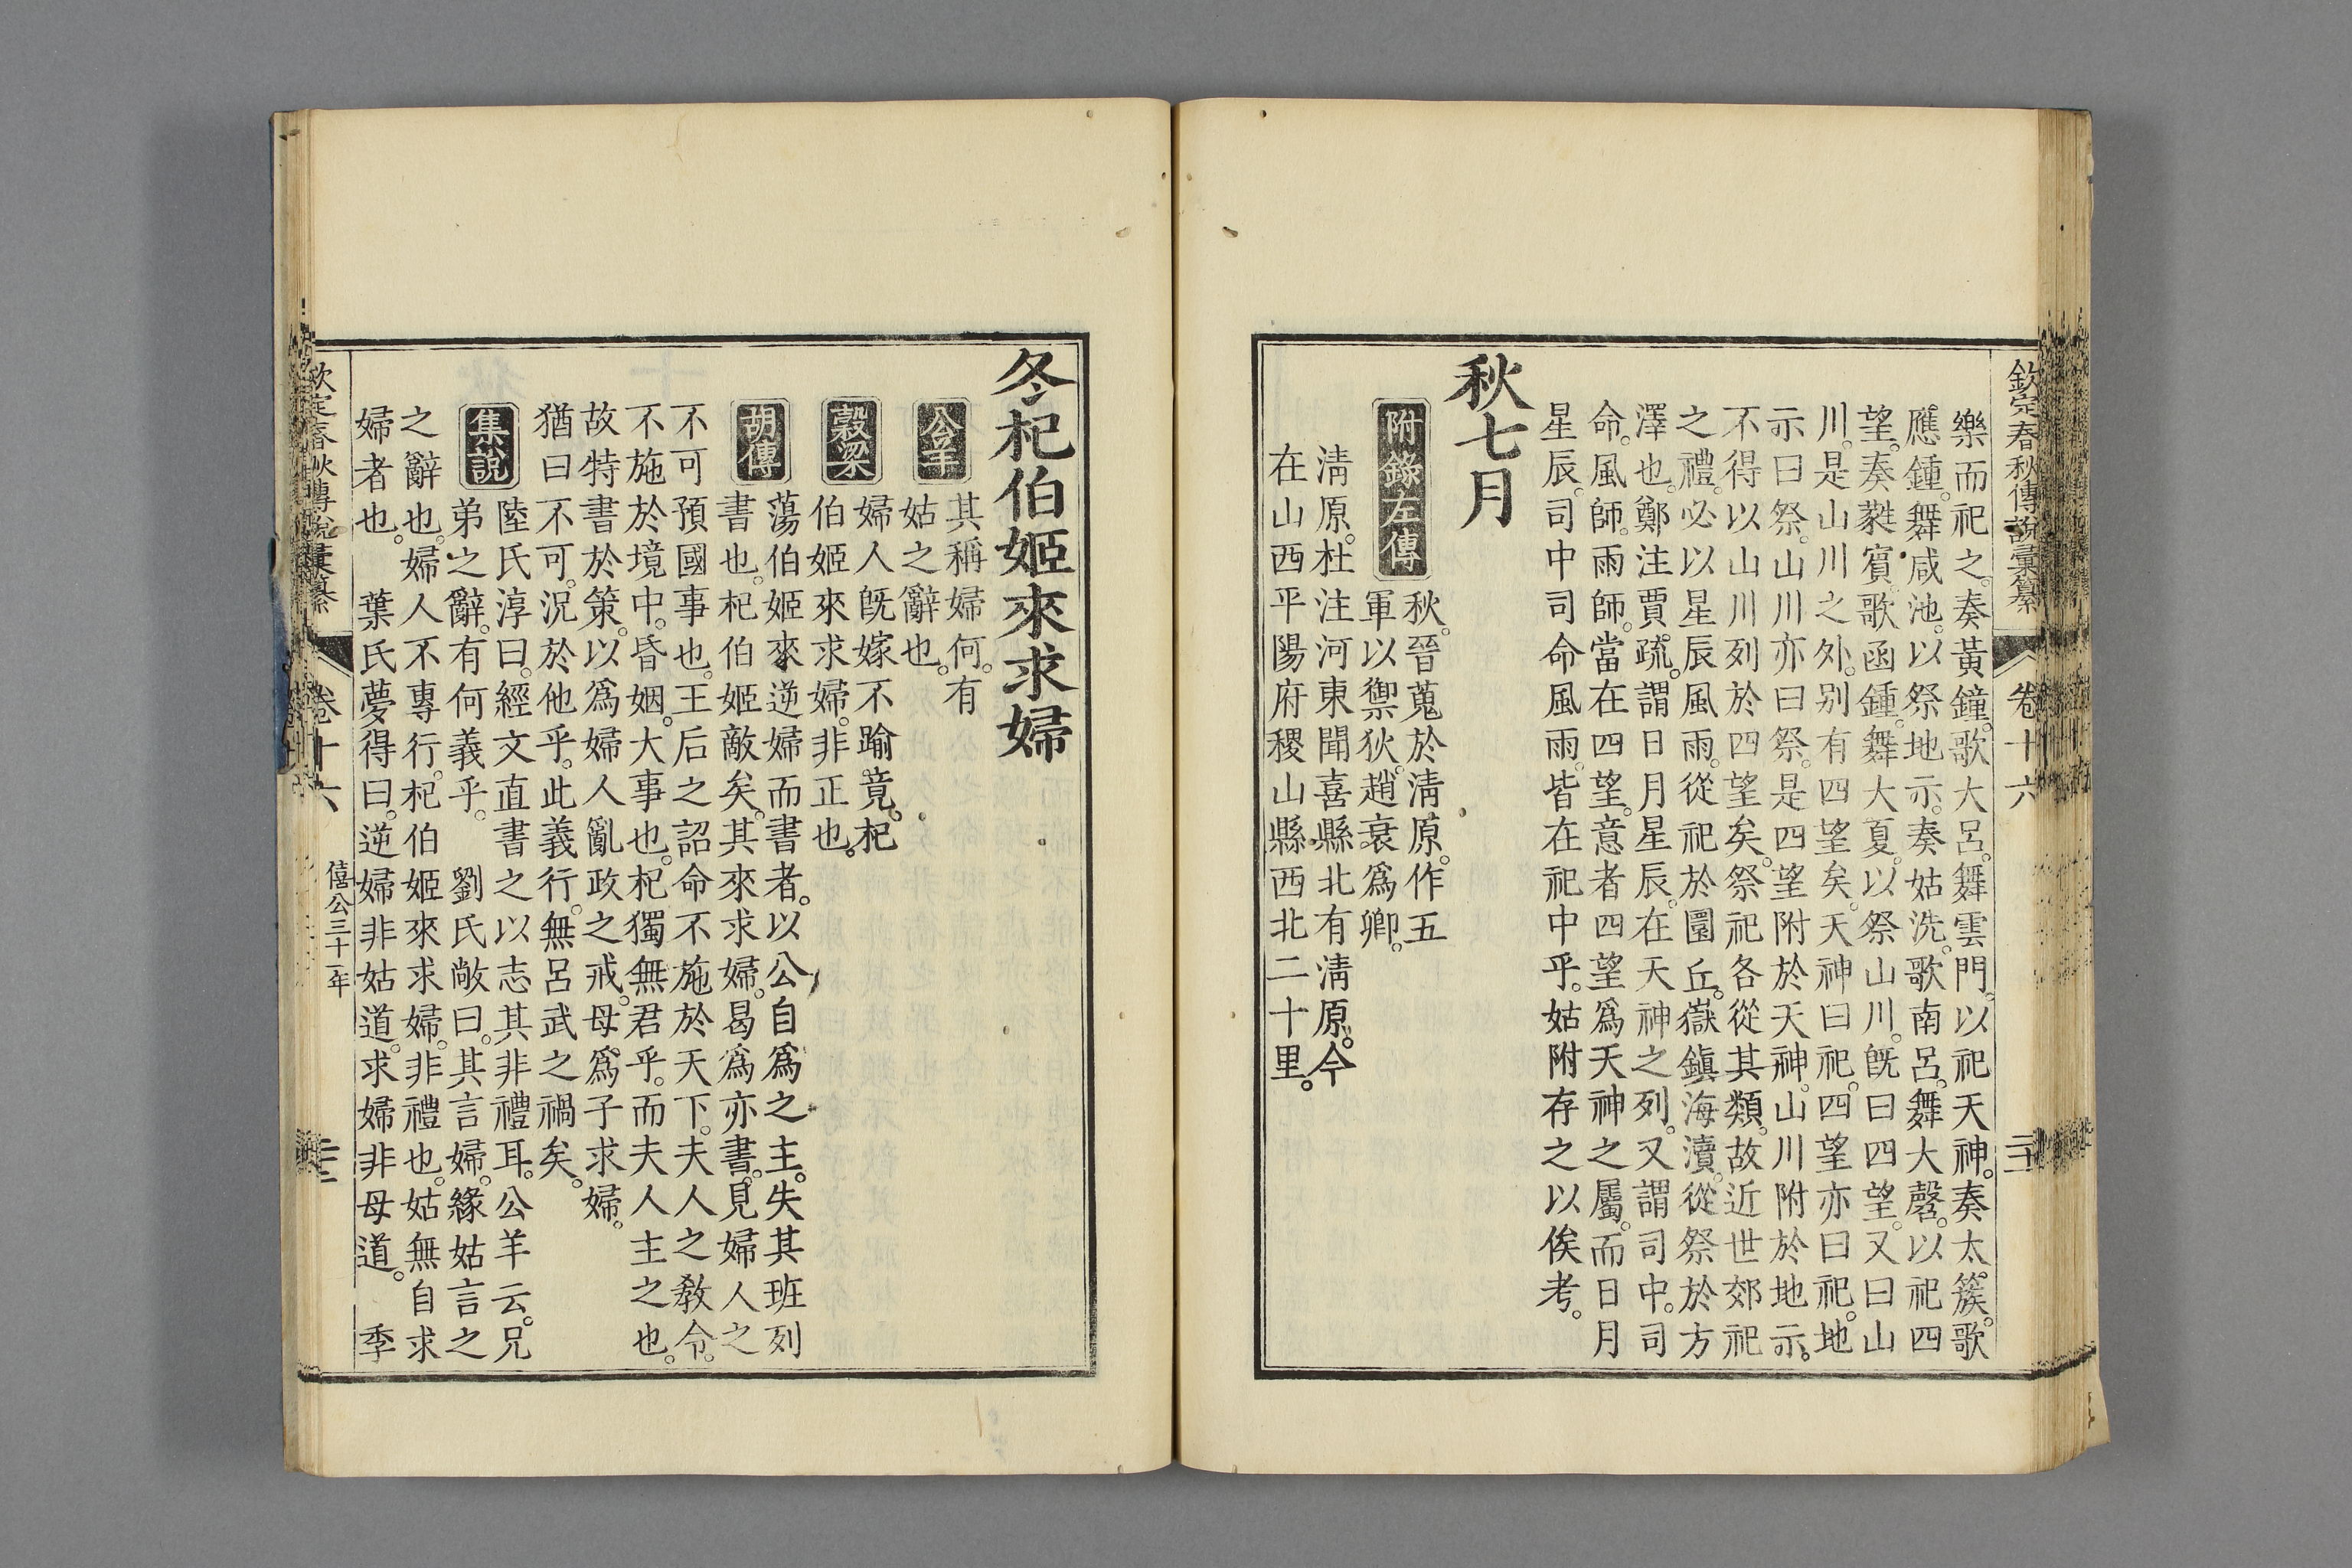 欽定春秋傳說彙纂 卷十六
樂而祀之。奏黃鐘。歌大呂。舞雲門。以祀天神。奏太簇。歌
應鍾。舞咸池。以祭地示。奏姑洗。歌南呂。舞大磬。以祀四
望。奏蕤賓。歌函鍾。舞大夏。以祭山川。旣曰四望。又曰山
川。是山川之外。别有四望矣。天神曰祀。四望亦曰祀。地
示曰祭。山川亦曰祭。是四望附於天神。山川附於地示。
不得以山川列於四望矣。祭祀各從其類。故近世郊祀
之禮。必以星辰風雨。從祀於圜丘。嶽鎮海瀆。從祭於方
澤也。鄭注賈疏。謂日月星辰。在天神之列。又謂司中。司
命。風師。雨師。當在四望。意者四望爲天神之屬。而日月
星辰。司中司命風雨。皆在祀中乎。姑附存之以俟考。
秋七月
附錄左傳 秋。晉蒐於淸原。作五
軍以禦狄。趙衰爲卿。
淸原。杜注河東聞喜縣北有淸原。今
在山西平陽府稷山縣西北二十里。
冬杞伯姬來求婦
公羊 其稱婦何。有
姑之辭也。
穀梁 婦人旣嫁不踰竟。杞
伯姬來求婦。非正也。
胡傳 蕩伯姬來逆婦而書者。以公自爲之主。失其班列
書也。杞伯姬敵矣。其來求婦。曷爲亦書。見婦人之
不可預國事也。王后之詔命不施於天下。夫人之敎令。
不施於境中。昏姻。大事也。杞獨無君乎。而夫人主之也。
故特書於策。以爲婦人亂政之戒。母爲子求婦。
猶曰不可。況於他乎。此義行。無呂武之禍矣。
集說 陸氏淳曰。經文直書之以志其非禮耳。公羊云。兄
弟之辭。有何義乎。 劉氏敞曰。其言婦。緣姑言之
之辭也。婦人不專行。杞伯姬來求婦。非禮也。姑無自求
婦者也。 葉氏夢得曰。逆婦非姑道。求婦非母道。 季
欽定春秋傳說彙纂 卷十六 僖公三十一年